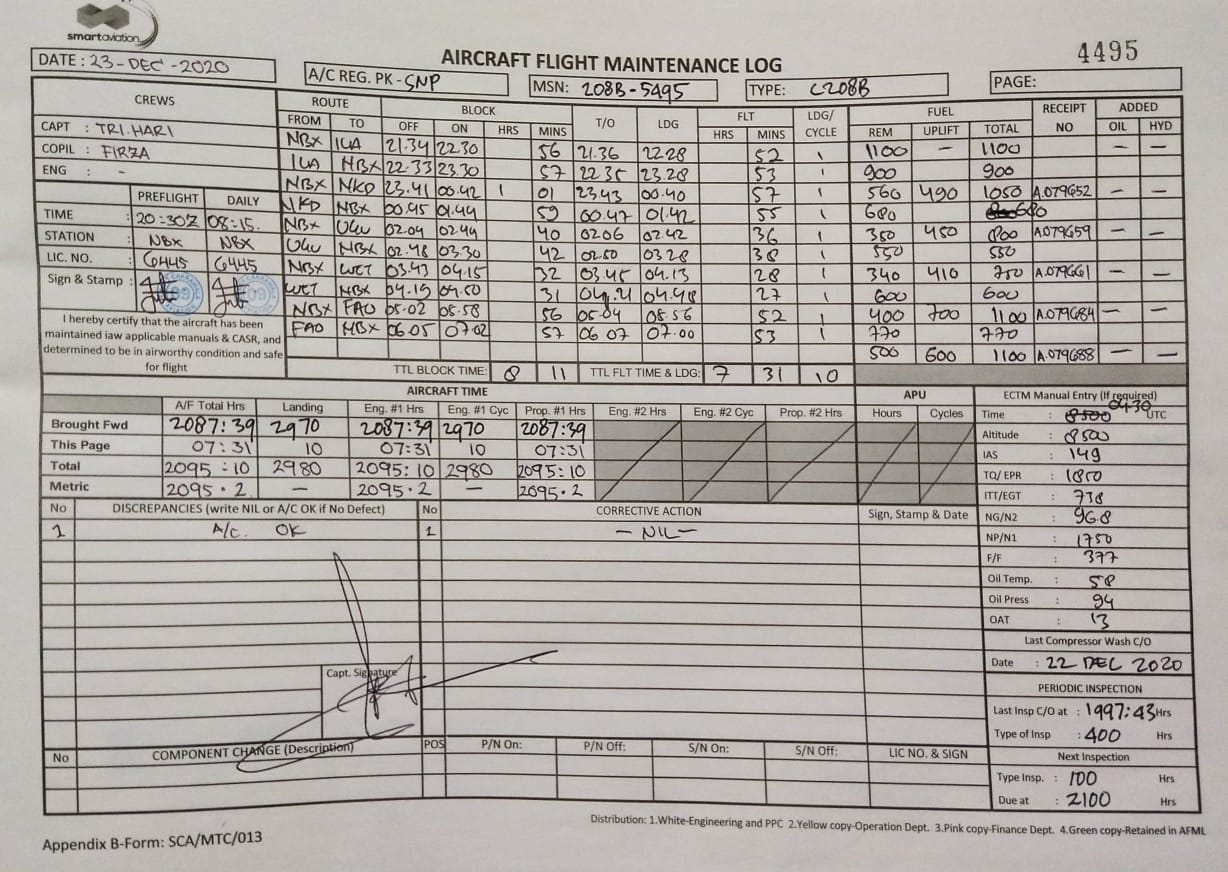 smartaviation
AIRCRAFT FLIGHT MAINTENANCE LOG
4495
DATE : 23-DEC-2020
A/C REG. PK - SNP
MSN: 208B-5495
TYPE: C208B
PAGE:
CREWS
CAPT : TRI.HARI
COPIL : FIRZA
ENG : -
PREFLIGHT DAILY
TIME : 20:30Z 08:15.
STATION : NBX NBX
LIC. NO. : 6445 6445
Sign & Stamp :
I hereby certify that the aircraft has been
maintained iaw applicable manuals & CASR, and
determined to be in airworthy condition and safe
for flight
ROUTE BLOCK T/O LDG FLT LDG/ CYCLE FUEL RECEIPT NO ADDED
FROM TO OFF ON HRS MINS HRS MINS REM UPLIFT TOTAL OIL HYD
NBX ILA 21.34 22.30 56 21.36 22.28 52 1 1100 - 1100 - -
ILA NBX 22.33 23.30 57 22.35 23.28 53 1 900 900
NBX NKD 23.41 00.42 1 01 23.43 00.40 57 1 560 490 1050 A.079652 - -
NKD NBX 00.45 01.44 59 00.47 01.42 55 1 680 680
NBX UGU 02.04 02.44 40 02.06 02.42 36 1 350 450 800 A079659 - -
UGU NBX 02.48 03.30 42 02.50 03.28 38 1 550 550
NBX WET 03.43 04.15 32 03.45 04.13 28 1 340 410 750 A.079661 - -
WET NBX 04.19 04.50 31 04.21 04.48 27 1 600 600
NBX FAO 05.02 05.58 56 05.04 05.56 52 1 400 700 1100 A.079684 - -
FAO NBX 06.05 07.02 57 06.07 07.00 53 1 770 770
500 600 1100 A.079688 - -
TTL BLOCK TIME: 8 11 TTL FLT TIME & LDG: 7 31 10
AIRCRAFT TIME
A/F Total Hrs Landing Eng. #1 Hrs Eng. #1 Cyc Prop. #1 Hrs Eng. #2 Hrs Eng. #2 Cyc Prop. #2 Hrs
Brought Fwd 2087:39 2970 2087:39 2970 2087:39
This Page 07:31 10 07:31 10 07:31
Total 2095:10 2980 2095:10 2980 2095:10
Metric 2095.2 - 2095.2 - 2095.2
APU
Hours Cycles
ECTM Manual Entry (If required)
Time : 8500 0430 UTC
Altitude : 8500
IAS : 149
TQ/ EPR : 1850
ITT/EGT : 738
NG/N2 : 96.8
NP/N1 : 1750
F/F : 377
Oil Temp. : 58
Oil Press : 94
OAT : 13
Last Compressor Wash C/O
Date : 22 DEC 2020
PERIODIC INSPECTION
Last Insp C/O at : 1997:43 Hrs
Type of Insp : 400 Hrs
Next Inspection
Type Insp. : 100 Hrs
Due at : 2100 Hrs
No DISCREPANCIES (write NIL or A/C OK if No Defect) No CORRECTIVE ACTION Sign, Stamp & Date
1 A/C. OK 1 - NIL -
Capt. Signature
No COMPONENT CHANGE (Description) POS P/N On: P/N Off: S/N On: S/N Off: LIC NO. & SIGN
Distribution: 1.White-Engineering and PPC 2.Yellow copy-Operation Dept. 3.Pink copy-Finance Dept. 4.Green copy-Retained in AFML
Appendix B-Form: SCA/MTC/013